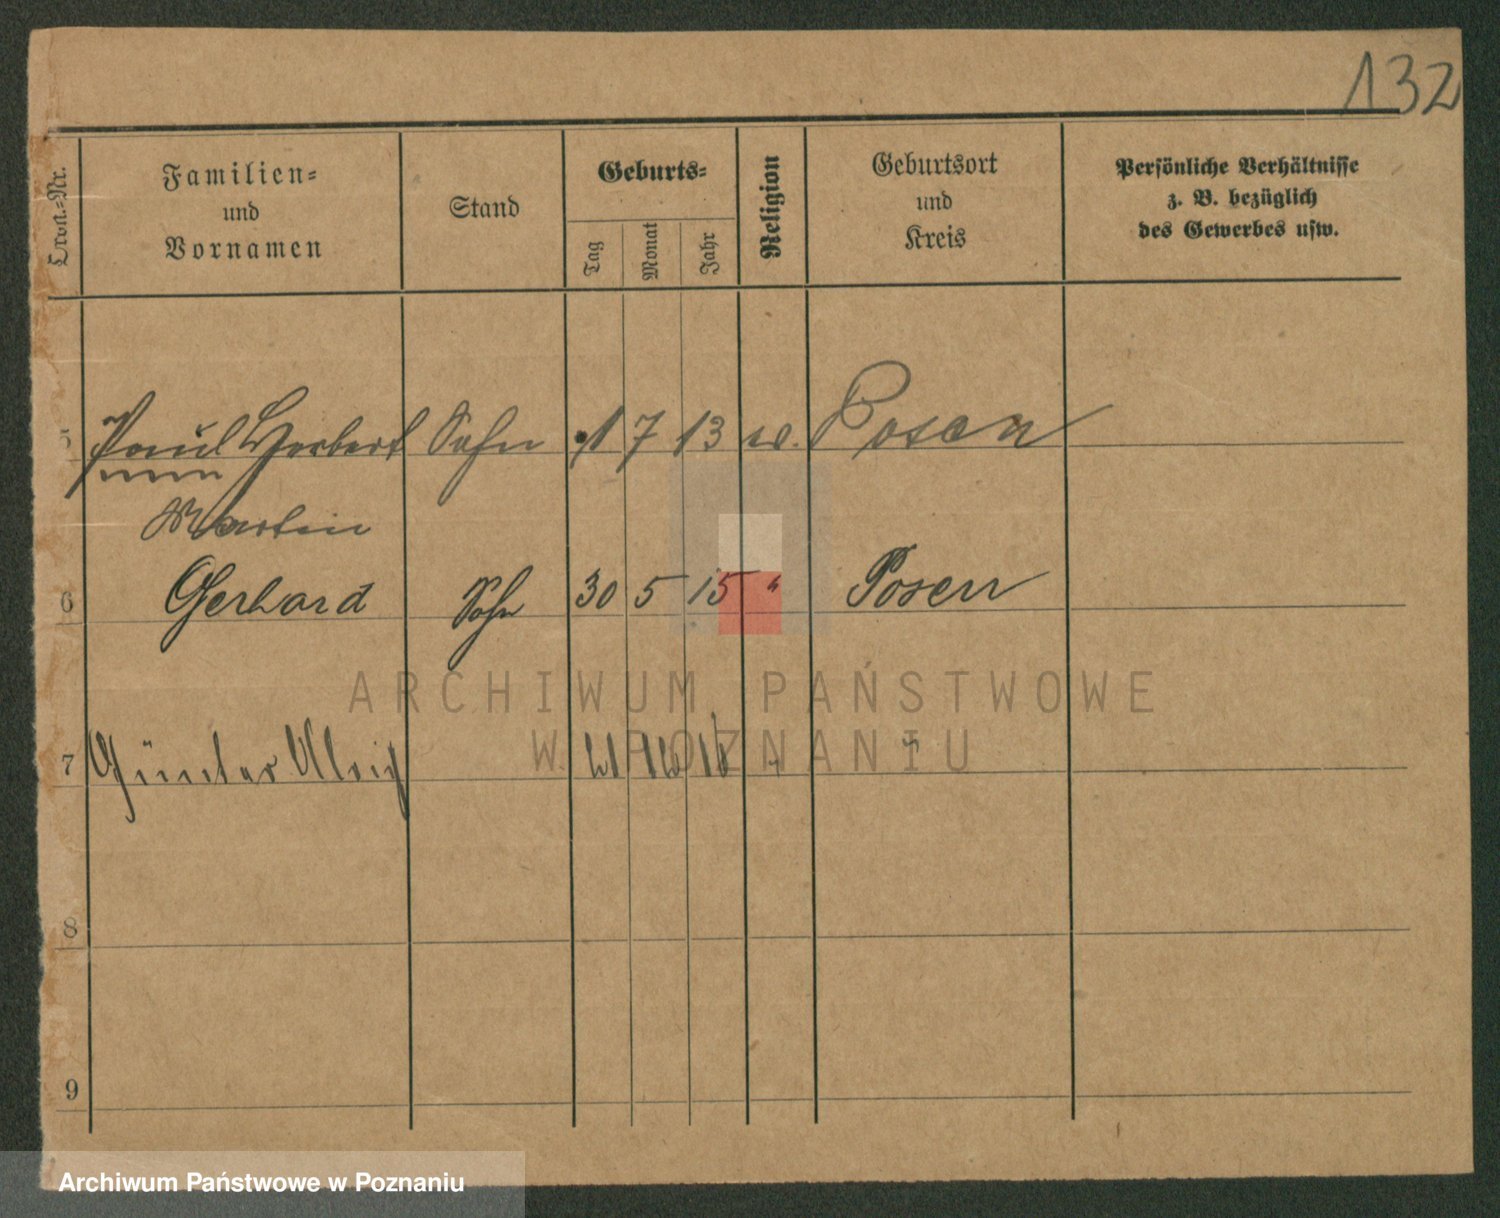 132
Ordn.-Nr.
Familien-
und
Vornamen
Stand
Geburts-
Tag
Monat
Jahr
Religion
Geburtsort
und
Kreis
Persönliche Verhältnisse
z. B. bezüglich
des Gewerbes usw.
5 Paul Herbert Sohn 1 7 13 Posen
Martin
6 Gerhard Sohn 30 5 15 " Posen
ARCHIWUM PAŃSTWOWE
W POZNANIU
7 Günter Ulrich
8
9
Archiwum Państwowe w Poznaniu